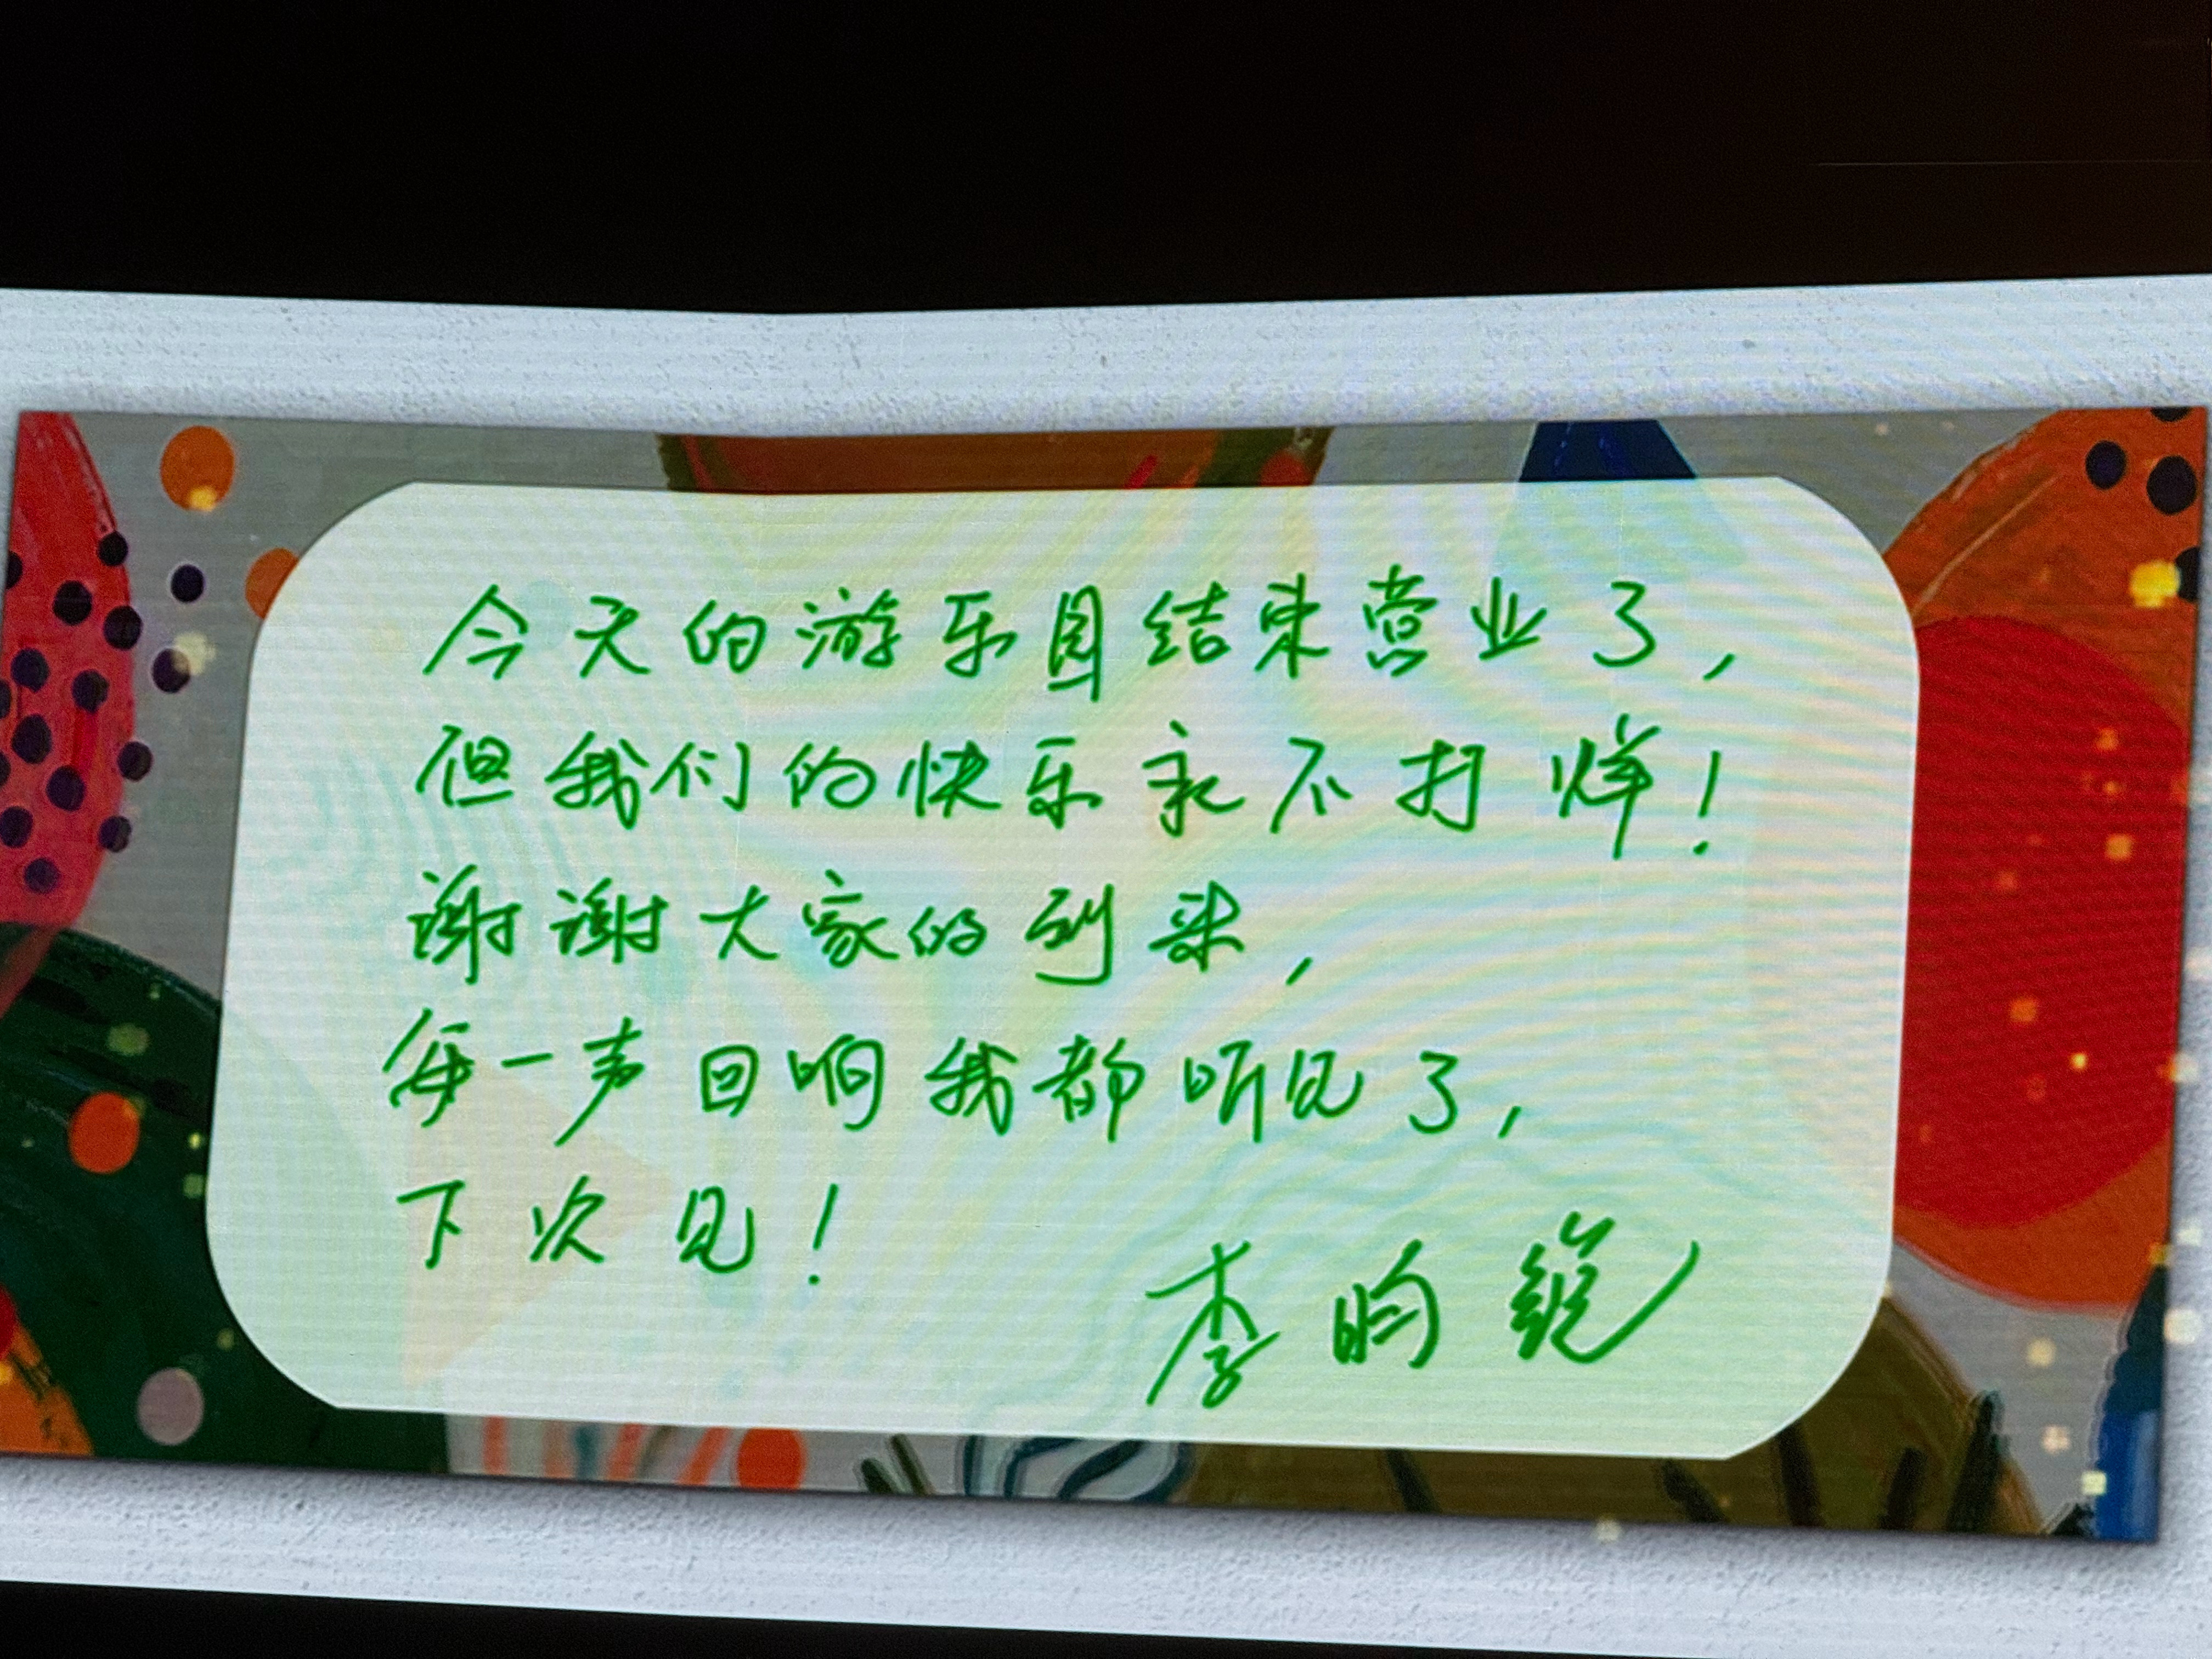 今天的游乐园结束营业了，
但我们的快乐永不打烊！
谢谢大家的到来，
每一声回响我都听见了，
下次见！
李昀锐